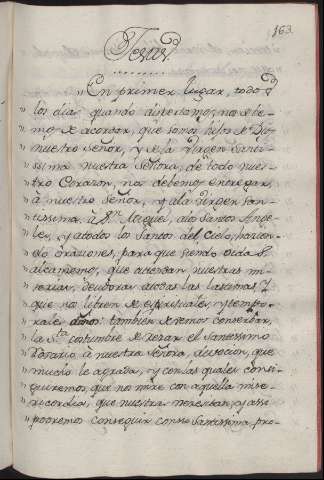 163
"En primer lugar, todos
"los dias quando dispertamos, nos de-
"mos de acordar, que somos hijos de Dios
"nuestro Señor, y de la Virgen Santi-
"ssima nuestra Señora, de todo nues-
"tro Corazon, nos debemos encargar
"a nuestro Señor, y ala Virgen San-
"tissima, à Sn. Miguel, alos Santos Ange-
"les, y atodos los Santos del Cielo, hacien-
"do oraciones, para que siendo oida
"alcansemos, que atiendan nuestras mi-
"serias, de todas las lastimas, y
"que nos libren de espirituales, y tempo-
"rales daños: tambien debemos conservar,
"la Sta. costumbre de rezar el Santissimo
"Rosario à nuestra Señora, devocion, que
"mucho le agrada, y con las quales conse-
"guiremos que nos mire con aquella mise-
"ricordia, que nuestras necesitan, y assi
"podremos conseguir con su Santissima, pro-